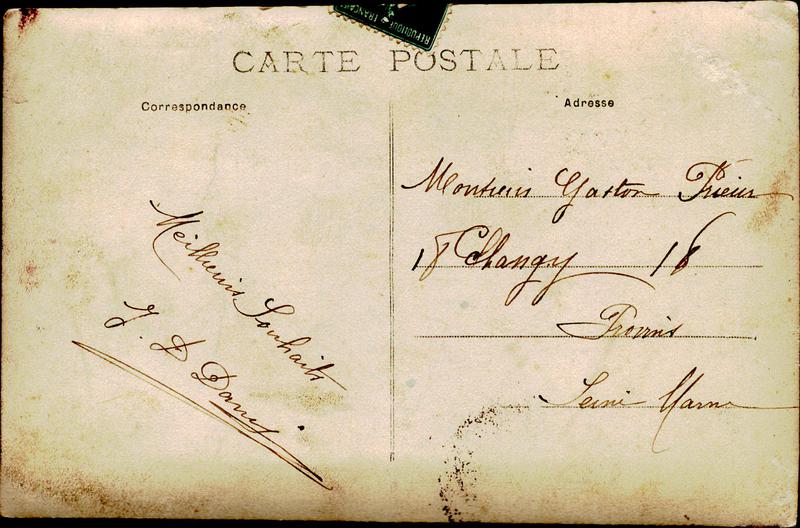 REPUBLIQUE FRANÇAI
CARTE POSTALE
Correspondance
Adresse
Meilleurs Souhaits
J. D
Monsieur Gaston Prieur
18 Changy 18
Provins
Seine Marne